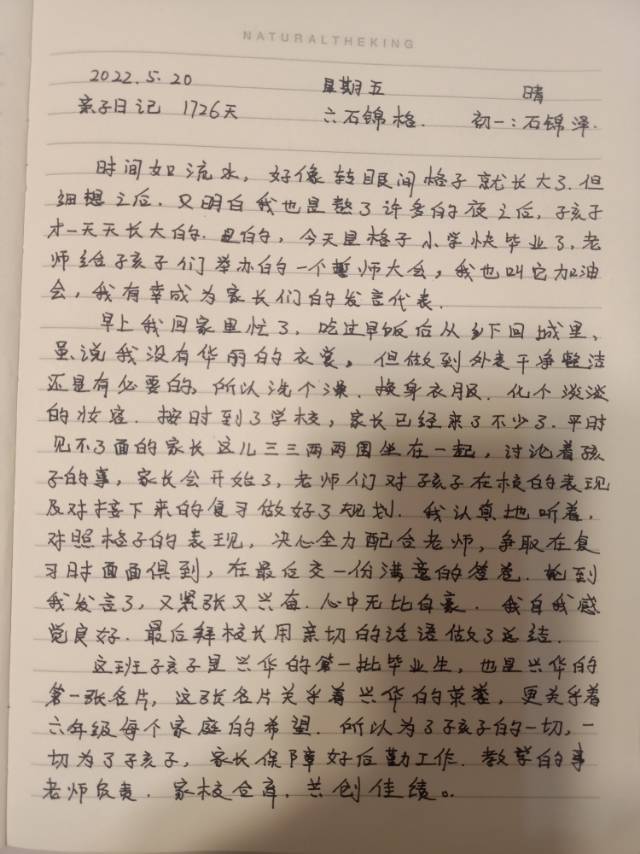 NATURALTHEKING
2022.5.20 星期五 晴
亲子日记 1726天 六石锦格. 初一:石锦泽.
时间如流水,好像转眼间格子就长大了.但
细想之后,又明白我也是熬了许多的夜之后,子孩子
才一天天长大的.是的,今天是格子小学快毕业了,老
师给子孩子们举办的一个誓师大会,我也叫它加油
会,我有幸成为家长们的发言代表.
早上我回家里忙了,吃过早饭后从乡下回城里,
虽说我没有华丽的衣裳,但做到外表干净整洁
还是有必要的,所以洗个澡.换身衣服.化个淡淡
的妆容.按时到了学校,家长已经来了不少了.平时
见不了面的家长这儿三三两两围坐在一起,讨论着孩
子的事,家长会开始了,老师们对子孩子在校的表现
及对接下来的复习做好了规划.我认真地听着.
对照格子的表现,决心全力配合老师,争取在复
习时面面俱到,在最后交一份满意的答卷.轮到
我发言了,又紧张又兴奋.心中无比自豪.我自我感
觉良好.最后拜校长用亲切的话语做了总结.
这班子孩子是兴华的第一批毕业生,也是兴华的
第一张名片,这张名片关乎着兴华的荣誉,更关乎着
六年级每个家庭的希望.所以为了子孩子的一切,一
切为了子孩子,家长保障好后勤工作.教学的事
老师负责.家校合育,共创佳绩。.